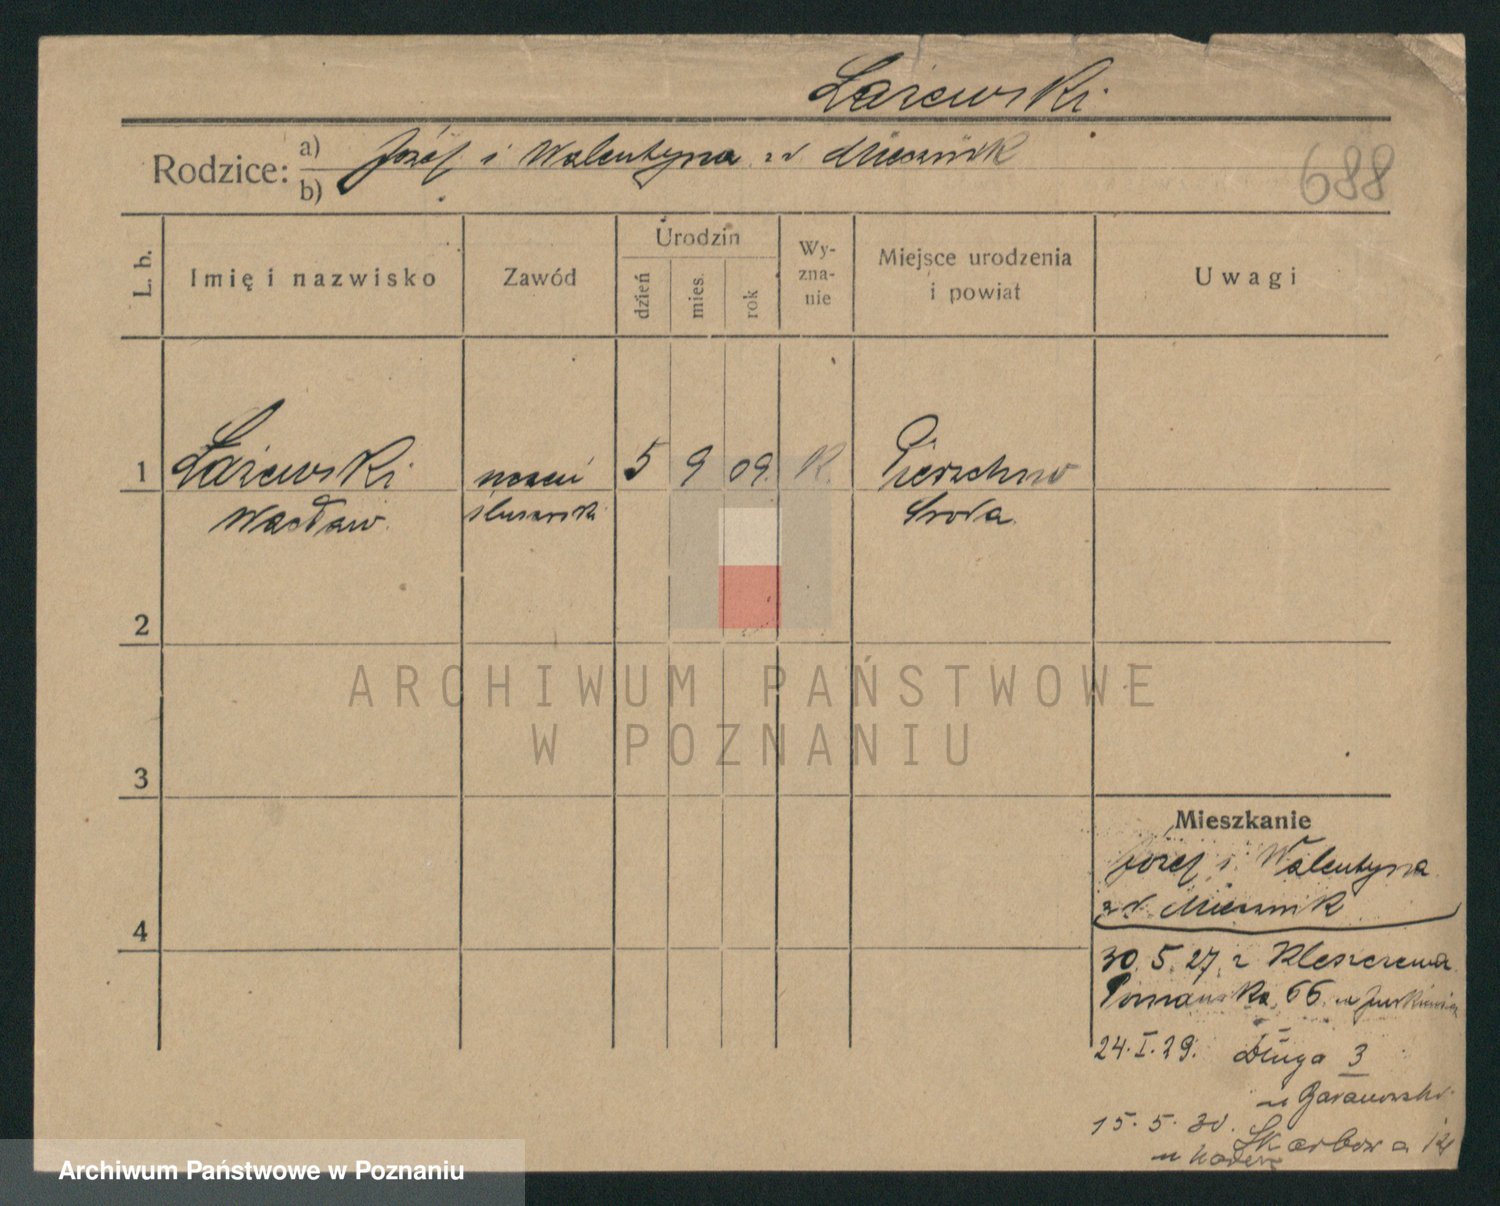 Łażewski
Rodzice: a) Józef i Walentyna z d. Mieznik
b)
688
L. b.
Imię i nazwisko
Zawód
Urodzin
dzień
mies.
rok
Wy-
zna-
nie
Miejsce urodzenia
i powiat
Uwagi
1 Łażewski uczeń 5 9 09. K. Pierzchno
Wacław ślusarski Środa
2
ARCHIWUM PAŃSTWOWE
W POZNANIU
3
4
Mieszkanie
Józef i Walentyna
z d.
30.5.27. z Kleszczewa
Poznańska 66
24.I.29. Długa 3
u Baranowski
15.5.30. Skarbowa
Archiwum Państwowe w Poznaniu